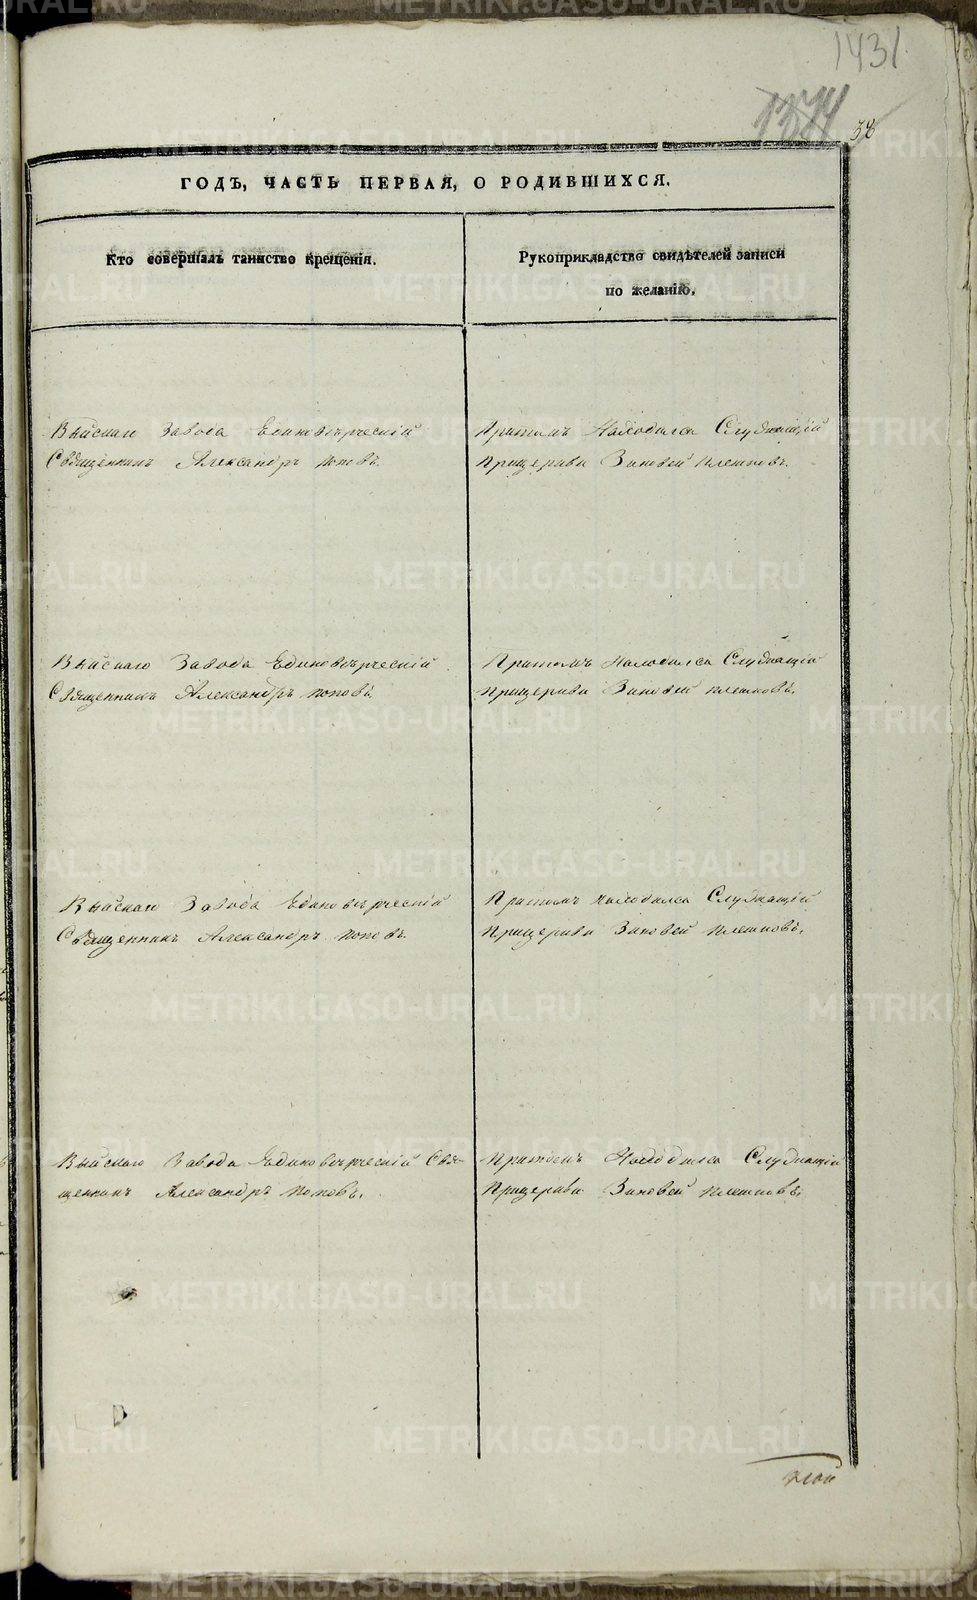 1431
1374
38
ГОДЪ, ЧАСТЬ ПЕРВАЯ, О РОДИВШИХСЯ.
Кто совершалъ таинство крещенія.
Рукоприкладство свидѣтелей записи
по желанію.
Выйскаго Завода Единовѣрческій
Священникъ Александръ Поповъ.
Притомъ Находился Служащій
Прицеркви Зиновей Плешковъ.
Выйскаго Завода Единовѣрческій
Священникъ Александръ Поповъ
Притомъ Находился Служащій
Прицеркви Зиновей Плешковъ.
Выйскаго Завода Единовѣрческій
Священникъ Александръ Поповъ.
Притомъ находился Служащій
Прицеркви Зиновей Плешковъ.
Выйскаго Завода Единовѣрческій Свя-
щенникъ Александръ Поповъ.
Притомъ Находился Служащій
Прицеркви Зиновей Плешковъ.
METRIKI.GASO-URAL.RU